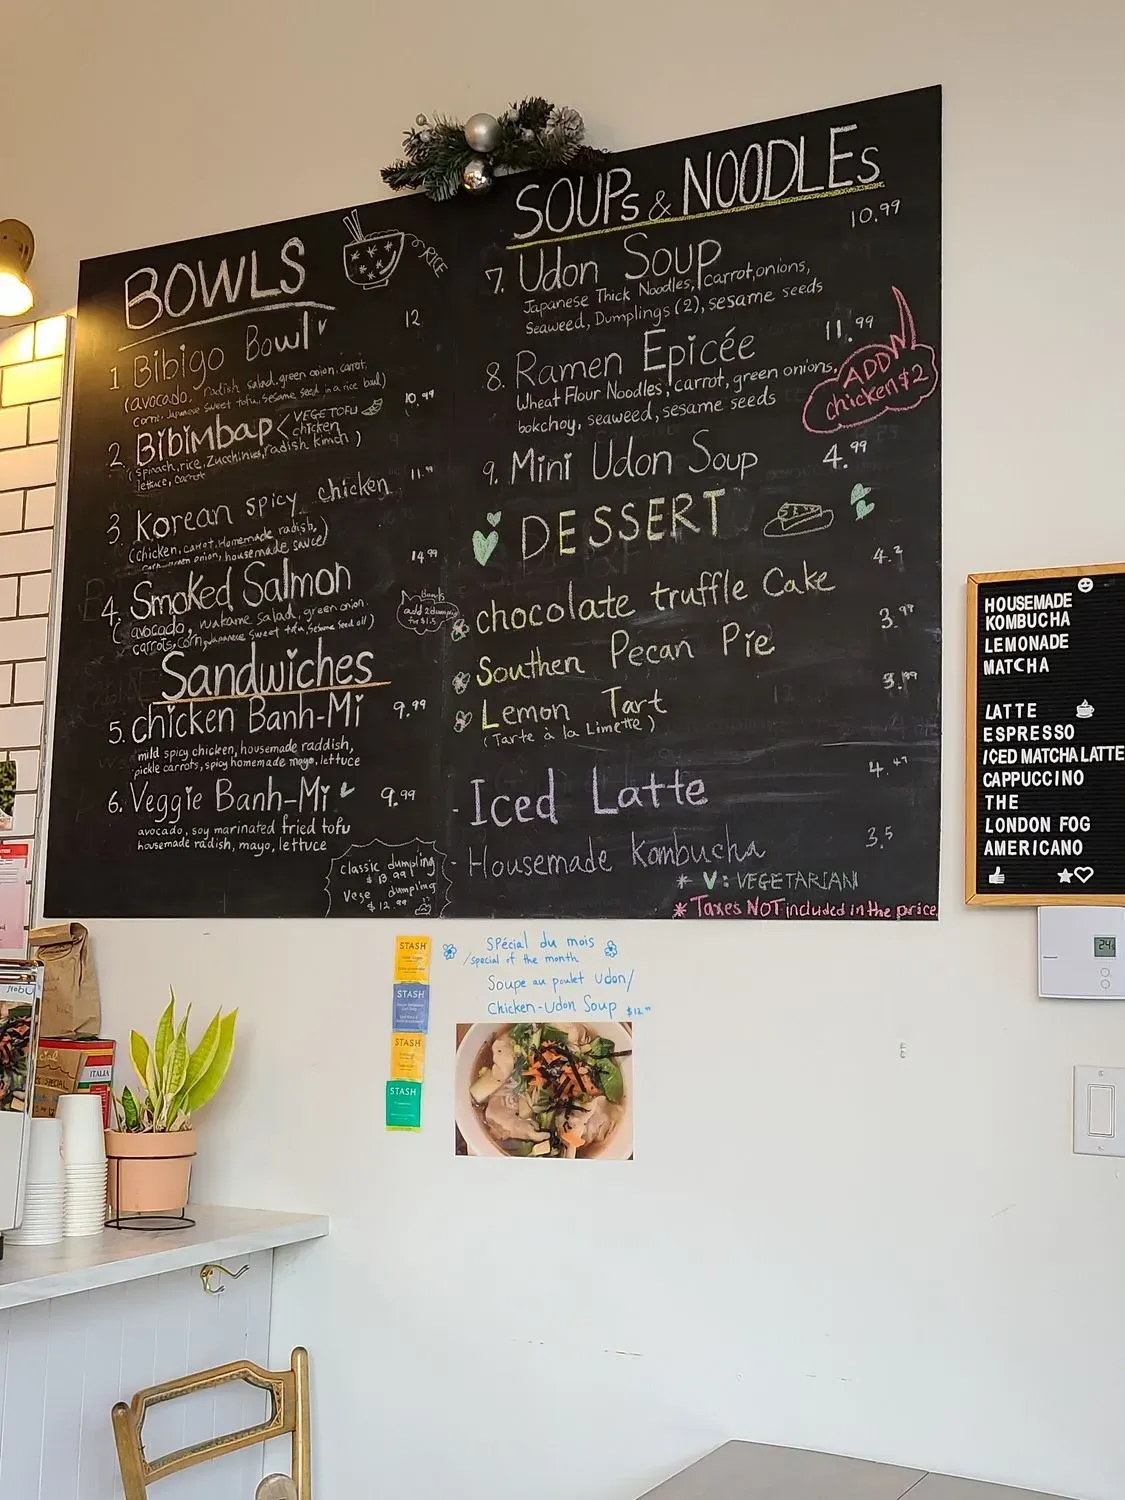 BOWLS
RICE
1 Bibigo Bowl 12
(avocado, radish salad, green onion, carrot,
corn, Japanese sweet tofu, sesame seed in a rice bowl)
2. BibiMbap < VEGE TOFU 10.99
chicken
(spinach, rice, Zucchinies, radish kimchi)
lettuce, carrot
3. Korean spicy chicken 11.
(chicken, carrot, Homemade radish,
corn, green onion, housemade sauce)
4. Smoked Salmon 14.99
(avocado, wakame salad, green onion.
carrots, corn, Japanese sweet tofu, sesame seed oil)
add 2 dumplings
for $1.5
Sandwiches
5. chicken Banh-Mi 9.99
mild spicy chicken, housemade raddish,
pickle carrots, spicy homemade mayo, lettuce
6. Veggie Banh-Mi 9.99
avocado, soy marinated fried tofu
housemade radish, mayo, lettuce
classic dumpling
$13.99
Vege dumpling
$12.99
SOUPs & NOODLEs
10.99
7. Udon Soup
Japanese Thick Noodles, carrot, onions,
Seaweed, Dumplings (2), sesame seeds
8. Ramen Epicée 11.99
Wheat Flour Noodles, carrot, green onions,
bokchoy, seaweed, sesame seeds
ADD
chicken $2
9. Mini Udon Soup 4.99
DESSERT
chocolate truffle Cake 4.
Southen Pecan Pie 3.99
Lemon Tart 3.99
(Tarte à la Limette)
- Iced Latte 4.
- Housemade Kombucha 3.5
* V: VEGETARIAN
* Taxes NOT included in the price
HOUSEMADE
KOMBUCHA
LEMONADE
MATCHA
LATTE
ESPRESSO
ICED MATCHA LATTE
CAPPUCCINO
THE
LONDON FOG
AMERICANO
24
STASH
STASH
STASH
STASH
SPécial du mois
/special of the month
Soupe au poulet udon/
Chicken-Udon Soup $12.
ITALIA
SPECIAL